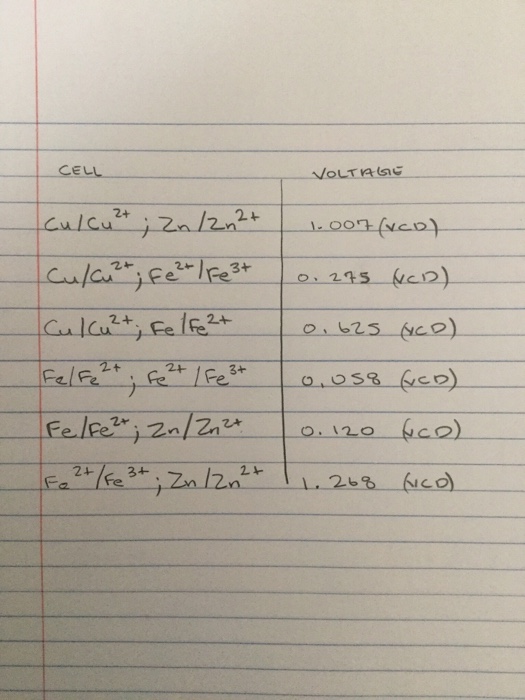 CELL VOLTAGE
Cu/Cu²⁺ ; Zn/Zn²⁺ 1.007 (VCD)
Cu/Cu²⁺ ; Fe²⁺/Fe³⁺ 0.275 (VCD)
Cu/Cu²⁺ ; Fe/Fe²⁺ 0.625 (VCD)
Fe/Fe²⁺ ; Fe²⁺/Fe³⁺ 0.058 (VCD)
Fe/Fe²⁺ ; Zn/Zn²⁺ 0.120 (VCD)
Fe²⁺/Fe³⁺ ; Zn/Zn²⁺ 1.268 (VCD)